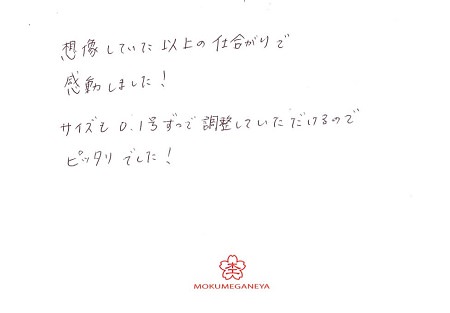 想像していた以上の仕合がりで
感動しました！
サイズも0.1号ずつで調整していただけるので
ピッタリでした！
杢
MOKUMEGANEYA